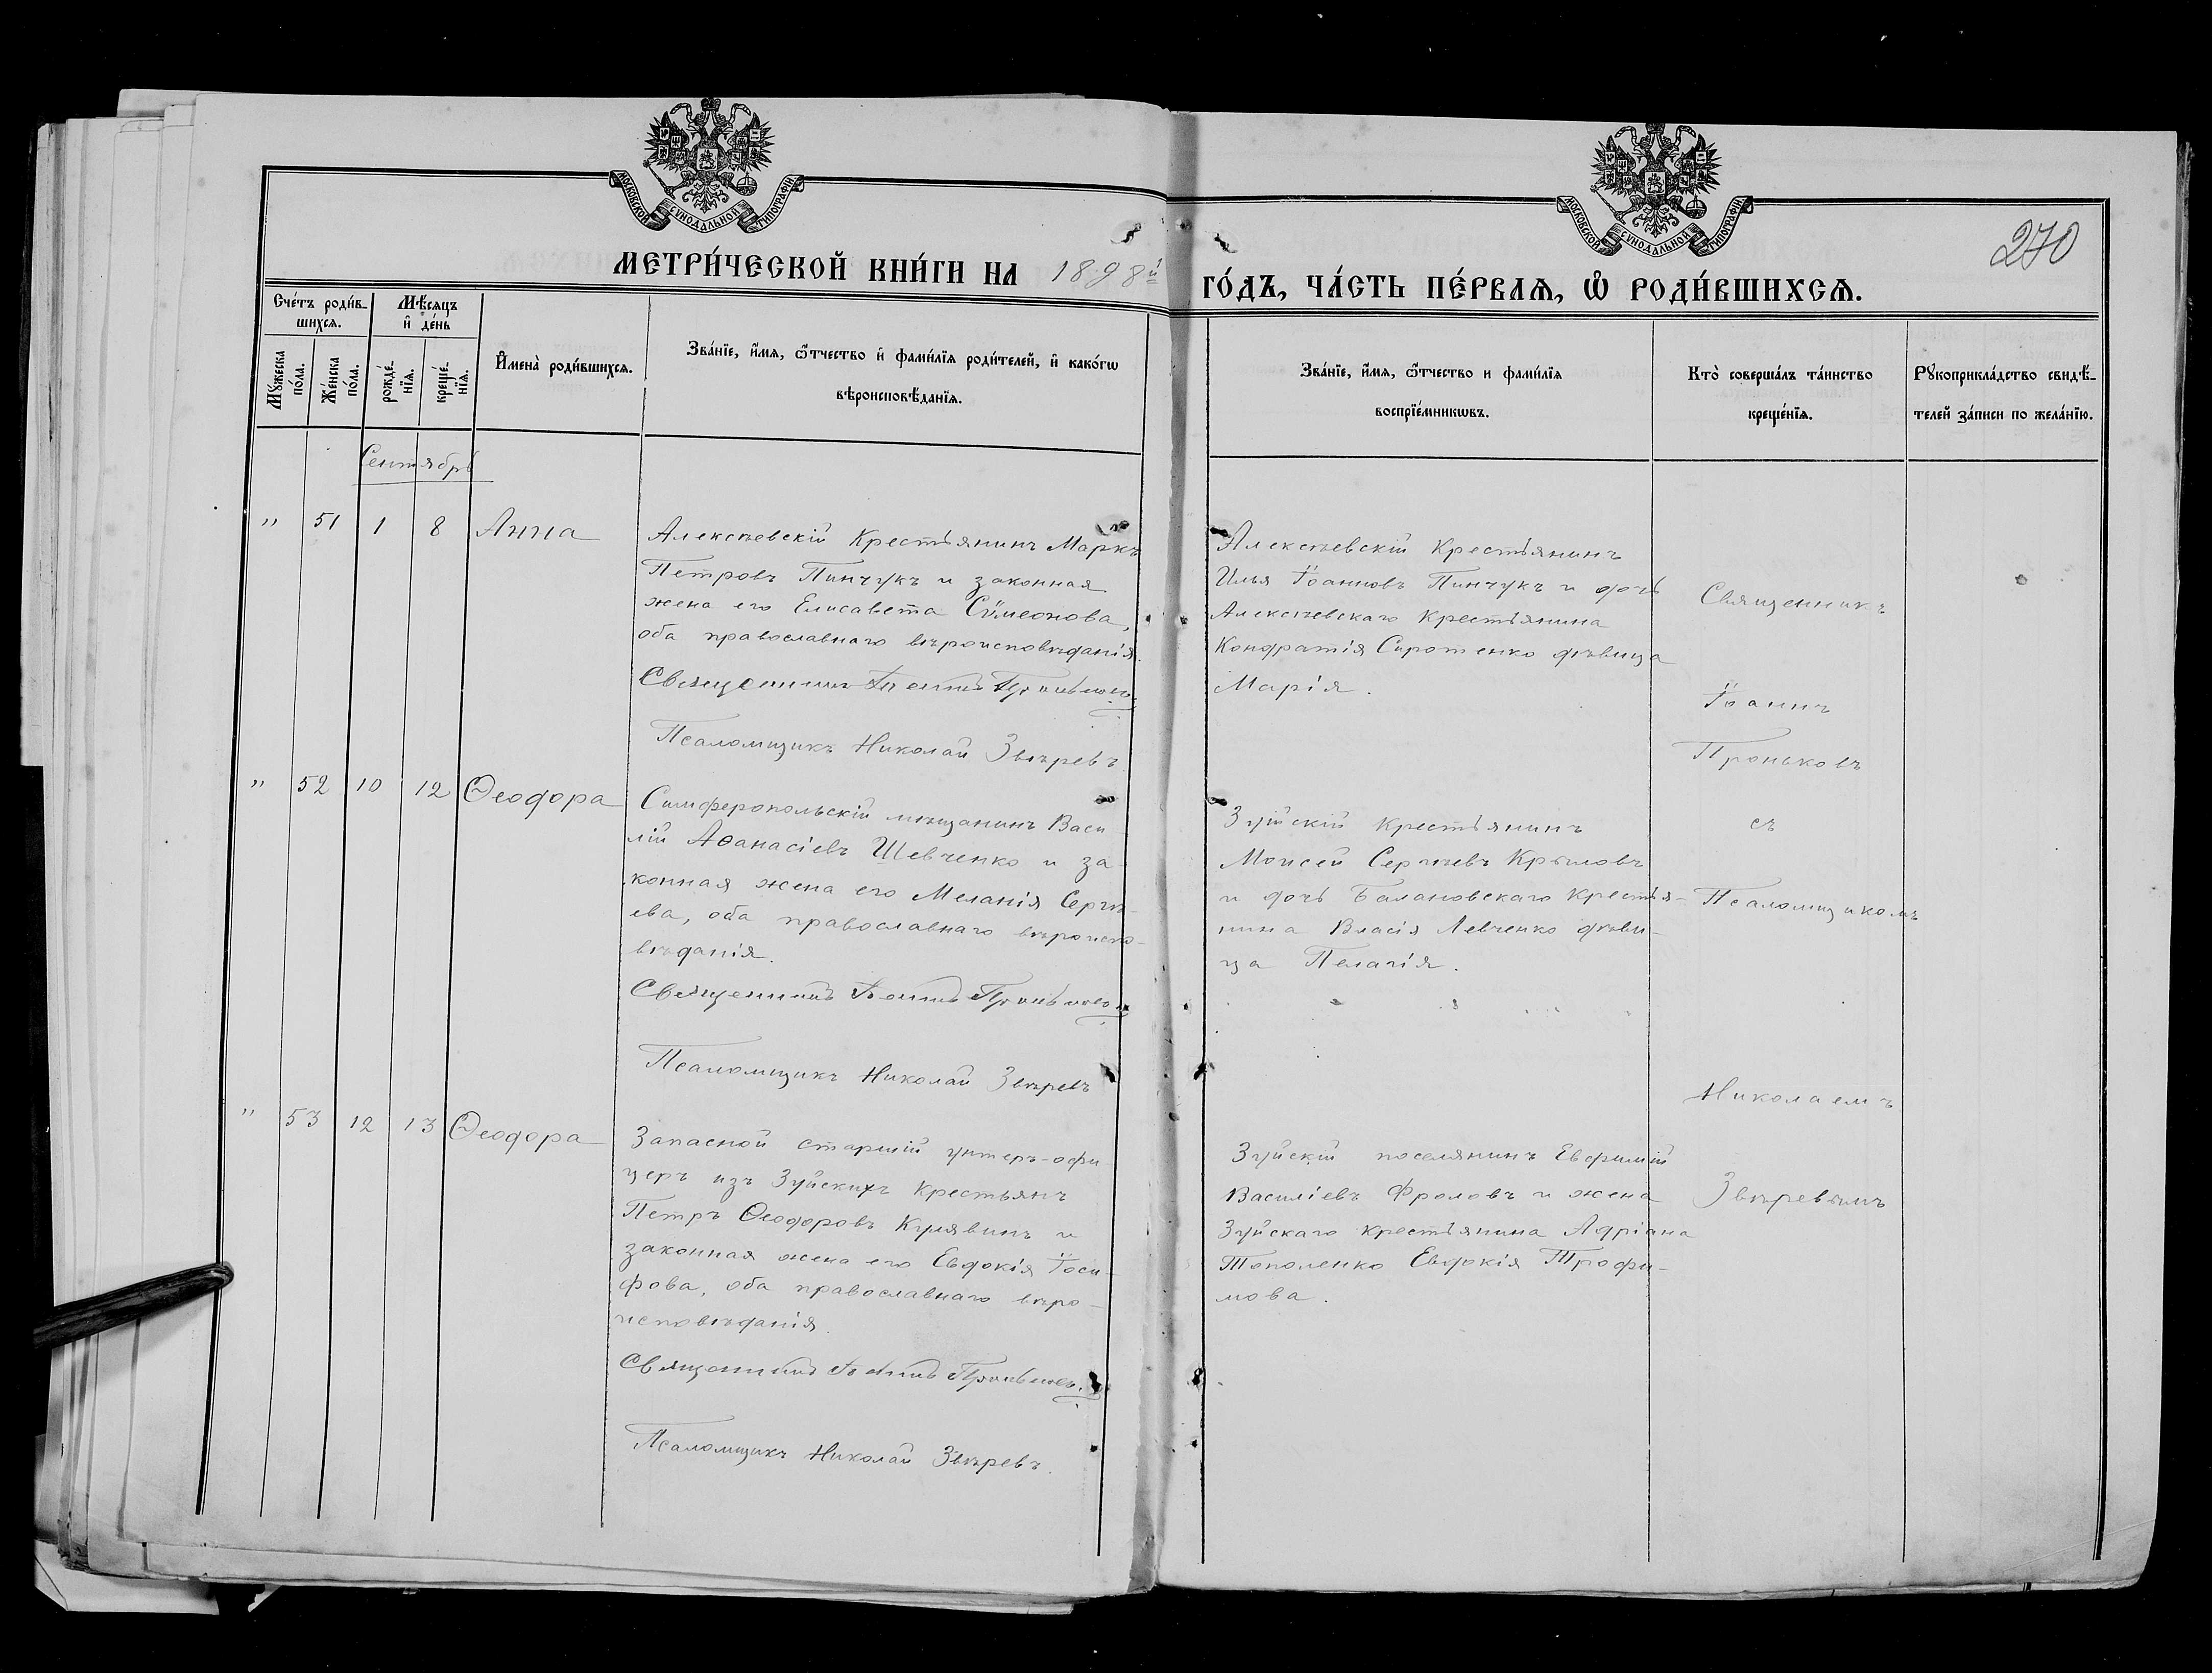 МОСКОВСКОЙ СѴНОДАЛЬНОЙ ТИПОГРАФІИ.
МОСКОВСКОЙ СѴНОДАЛЬНОЙ ТИПОГРАФІИ.
270
МЕТРИ́ЧЕСКОЙ КНИ́ГИ НА 1898й
ГО́ДЪ, ЧА́СТЬ ПЕ́РВАѦ, Ѽ РОДИ́ВШИХСѦ.
Сче́тъ роди́в-
шихсѧ.
Мѣ́сѧцъ
и҆ де́нь
Мꙋ́жеска
по́ла.
Же́нска
по́ла.
рожде́-
нїѧ.
креще́-
нїѧ.
И҆мена̀ роди́вшихсѧ.
Зва́нїе, и҆́мѧ, ѻ҆́тчество и҆ фами́лїѧ роди́телей, и҆ како́гѡ
вѣроисповѣ́данїѧ.
Зва́нїе, и҆́мѧ, ѻ҆́тчество и фами́лїѧ
воспрїе́мникѡвъ.
Кто̀ соверша́лъ та́инство
креще́нїѧ.
Рꙋкоприкла́дство свидѣ́-
телей за́писи по жела́нїю.
Сентябрь
" 51 1 8 Анна
Алексѣевскій Крестьянинъ Маркъ
Петровъ Пинчукъ и законная
жена его Елисавета Сѵмеонова,
оба православнаго вѣроисповѣданія.
Священникъ Іоаннъ Проньковъ
Псаломщикъ Николай Звѣревъ
Алексѣевскій Крестьянинъ
Илья Іоанновъ Пинчукъ и дочь
Алексѣевскаго Крестьянина
Кондратія Сиротенко дѣвица
Марія.
Священникъ
Іоаннъ
Проньковъ
съ
Псаломщикомъ
Николаемъ
Звѣревымъ
" 52 10 12 Ѳеодора
Симферопольскій мѣщанинъ Васи
лій Аѳанасіевъ Шевченко и за
конная жена его Меланія Сергѣ-
ева, оба православнаго вѣроиспо-
вѣданія.
Священникъ Іоаннъ Проньковъ
Псаломщикъ Николай Звѣревъ
Зуйскій Крестьянинъ
Моисей Сергѣевъ Крыловъ
и дочь Балановскаго Крестья-
нина Власія Левченко дѣви-
ца Пелагія.
" 53 12 13 Ѳеодора
Запасной старшій унтеръ-офи
церъ изъ Зуйскихъ Крестьянъ
Петръ Ѳеодоровъ Кулявинъ и
законная жена его Евдокія Іоси-
фова, оба православнаго вѣро-
исповѣданія.
Священникъ Іоаннъ Проньковъ.
Псаломщикъ Николай Звѣревъ.
Зуйскій поселянинъ Евфимій
Василіевъ Фроловъ и жена
Зуйскаго крестьянина Адріана
Тополенко Евдокія Трофи-
мова.